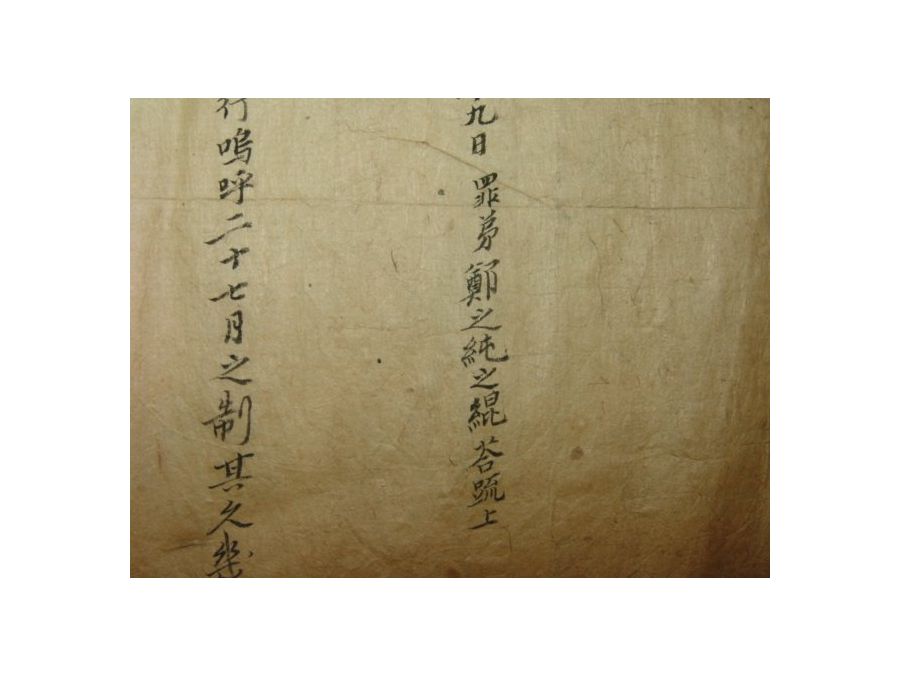 九日 罪弟鄭之純之緄答疏上
行嗚呼二十七月之制其久幾